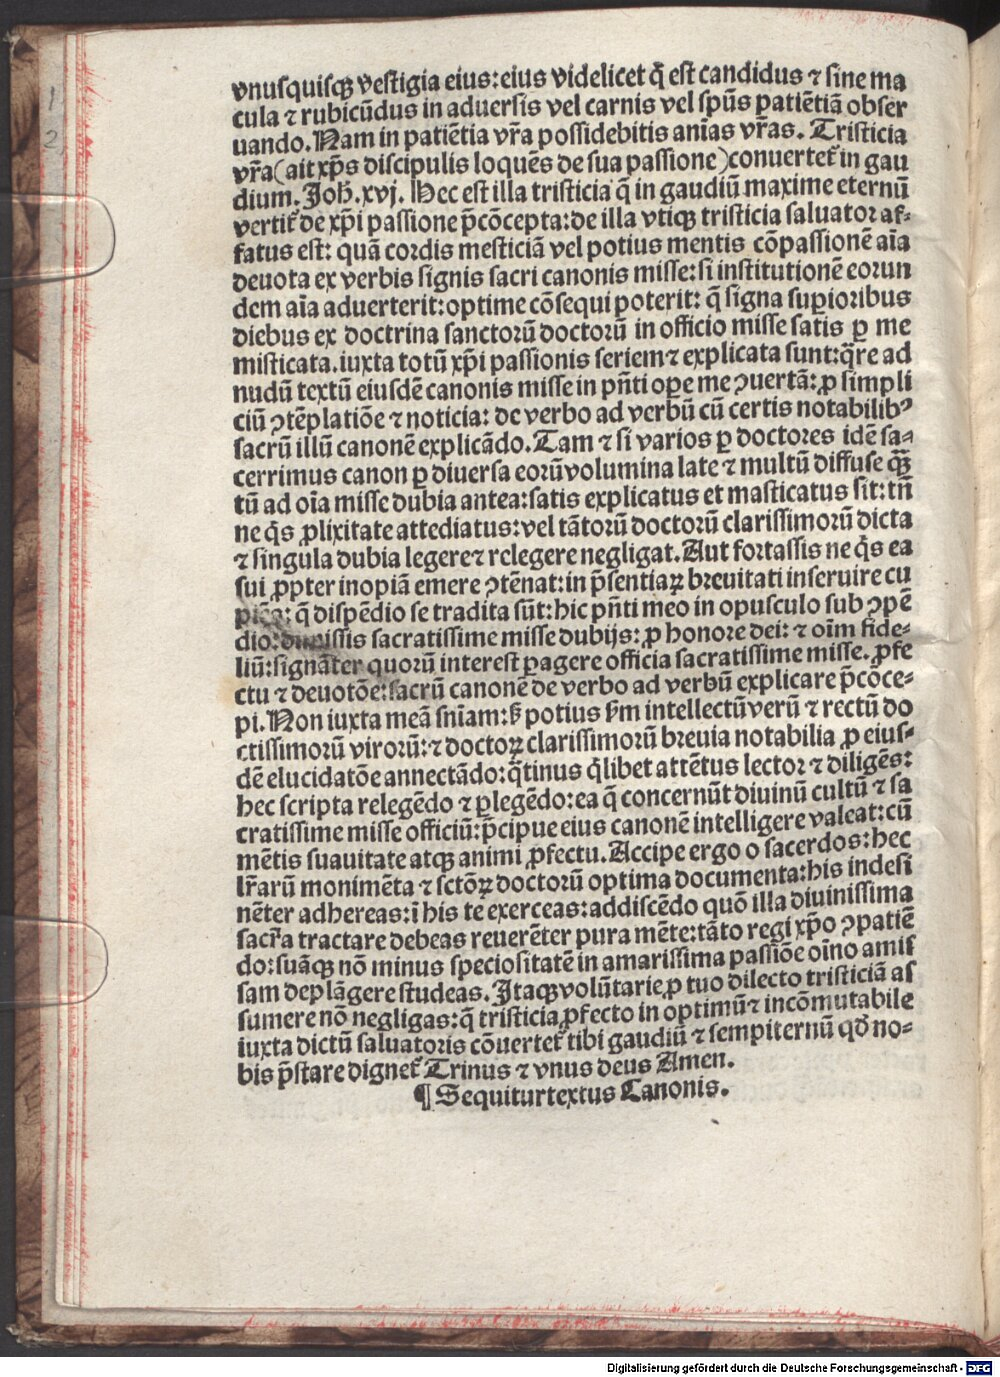 vnusquisqꝫ vestigia eius: eius videlicet q̄ est candidus ⁊ sine ma
cula ⁊ rubicūdus in aduersis vel carnis vel spūs patiētiā obser
uando. Nam in patiētia vr̄a possidebitis anīas vr̄as. Tristicia
vr̄a (ait xp̄s discipulis loquēs de sua passione) conuertet᷑ in gau
dium. Joh̄. xvj. Hec est illa tristicia q̄ in gaudiū maxime eternū
vertit᷑ de xp̄i passione p̄cōcepta: de illa vtiqꝫ tristicia saluator af⸗
fatus est: quā cordis mesticiā vel potius mentis cōpassionē aīa
deuota ex verbis signis sacri canonis misse: si institutionē eorun
dem aīa aduerterit: optime cōsequi poterit: q̄ signa suꝑioribus
diebus ex doctrina sanctorū doctorū in officio misse satis ꝑ me
misticata. iuxta totū xp̄i passionis seriem ⁊ explicata sunt: q̄re ad
nudū textū eiusdē canonis misse in pn̄ti oꝑe me ꝯuertā: ꝓ simpli
ciū ꝯtēplatiōe ⁊ noticia: de verbo ad verbū cū certis notabilibꝰ
sacrū illū canonē explicādo. Tam ⁊ si varios ꝑ doctores idē sa⸗
cerrimus canon ꝑ diuersa eorū volumina late ⁊ multū diffuse qꝫ̄
tū ad oīa misse dubia antea: satis explicatus et masticatus sit: tn̄
ne q̄s ꝓlixitate attediatus: vel tātorū doctorū clarissimorū dicta
⁊ singula dubia legere ⁊ relegere negligat. Aut fortassis ne q̄s ea
sui ꝓpter inopiā emere ꝯtēnat: in p̄sentiaꝝ breuitati inseruire cu
piēs: q̄ dispēdio se tradita sūt: hic pn̄ti meo in opusculo sub ꝯpē
dio: dimissis sacratissime misse dubijs: ꝓ honore dei: ⁊ oīm fide⸗
liū: signāter quorū interest ꝑagere officia sacratissime misse. ꝓfe
ctu ⁊ deuotōe: sacrū canonē de verbo ad verbū explicare p̄cōce⸗
pi. Non iuxta meā sn̄iam: s̄ꝫ potius s̄m intellectū verū ⁊ rectū do
ctissimorū virorū: ⁊ doctoꝝ clarissimorū breuia notabilia ꝓ eius⸗
dē elucidatōe annectādo: q̄tinus q̄libet attētus lector ⁊ diligēs:
hec scripta relegēdo ⁊ ꝑlegēdo: ea q̄ concernūt diuinū cultū ⁊ sa
cratissime misse officiū: p̄cipue eius canonē intelligere valeat: cū
mētis suauitate atqꝫ animi ꝓfectu. Accipe ergo o sacerdos: hec
lr̄arū monimēta ⁊ sctōꝝ doctorū optima documenta: his indesi
nēter adhereas: ī his te exerceas: addiscēdo quō illa diuinissima
sacr̄a tractare debeas reuerēter pura mēte: tāto regi xp̄o ꝯpatiē
do: suāqꝫ nō minus speciositatē in amarissima passiōe oīno amis
sam deplāgere studeas. Itaqꝫ volūtarie ꝓ tuo dilecto tristiciā as
sumere nō negligas: q̄ tristicia ꝓfecto in optimū ⁊ incōmutabile
iuxta dictū saluatoris cōuertet᷑ tibi gaudiū ⁊ sempiternū qd̄ no⸗
bis p̄stare dignet᷑ Trinus ⁊ vnus deus Amen.
¶ Sequitur textus Canonis.
1
2
Digitalisierung gefördert durch die Deutsche Forschungsgemeinschaft - DFG